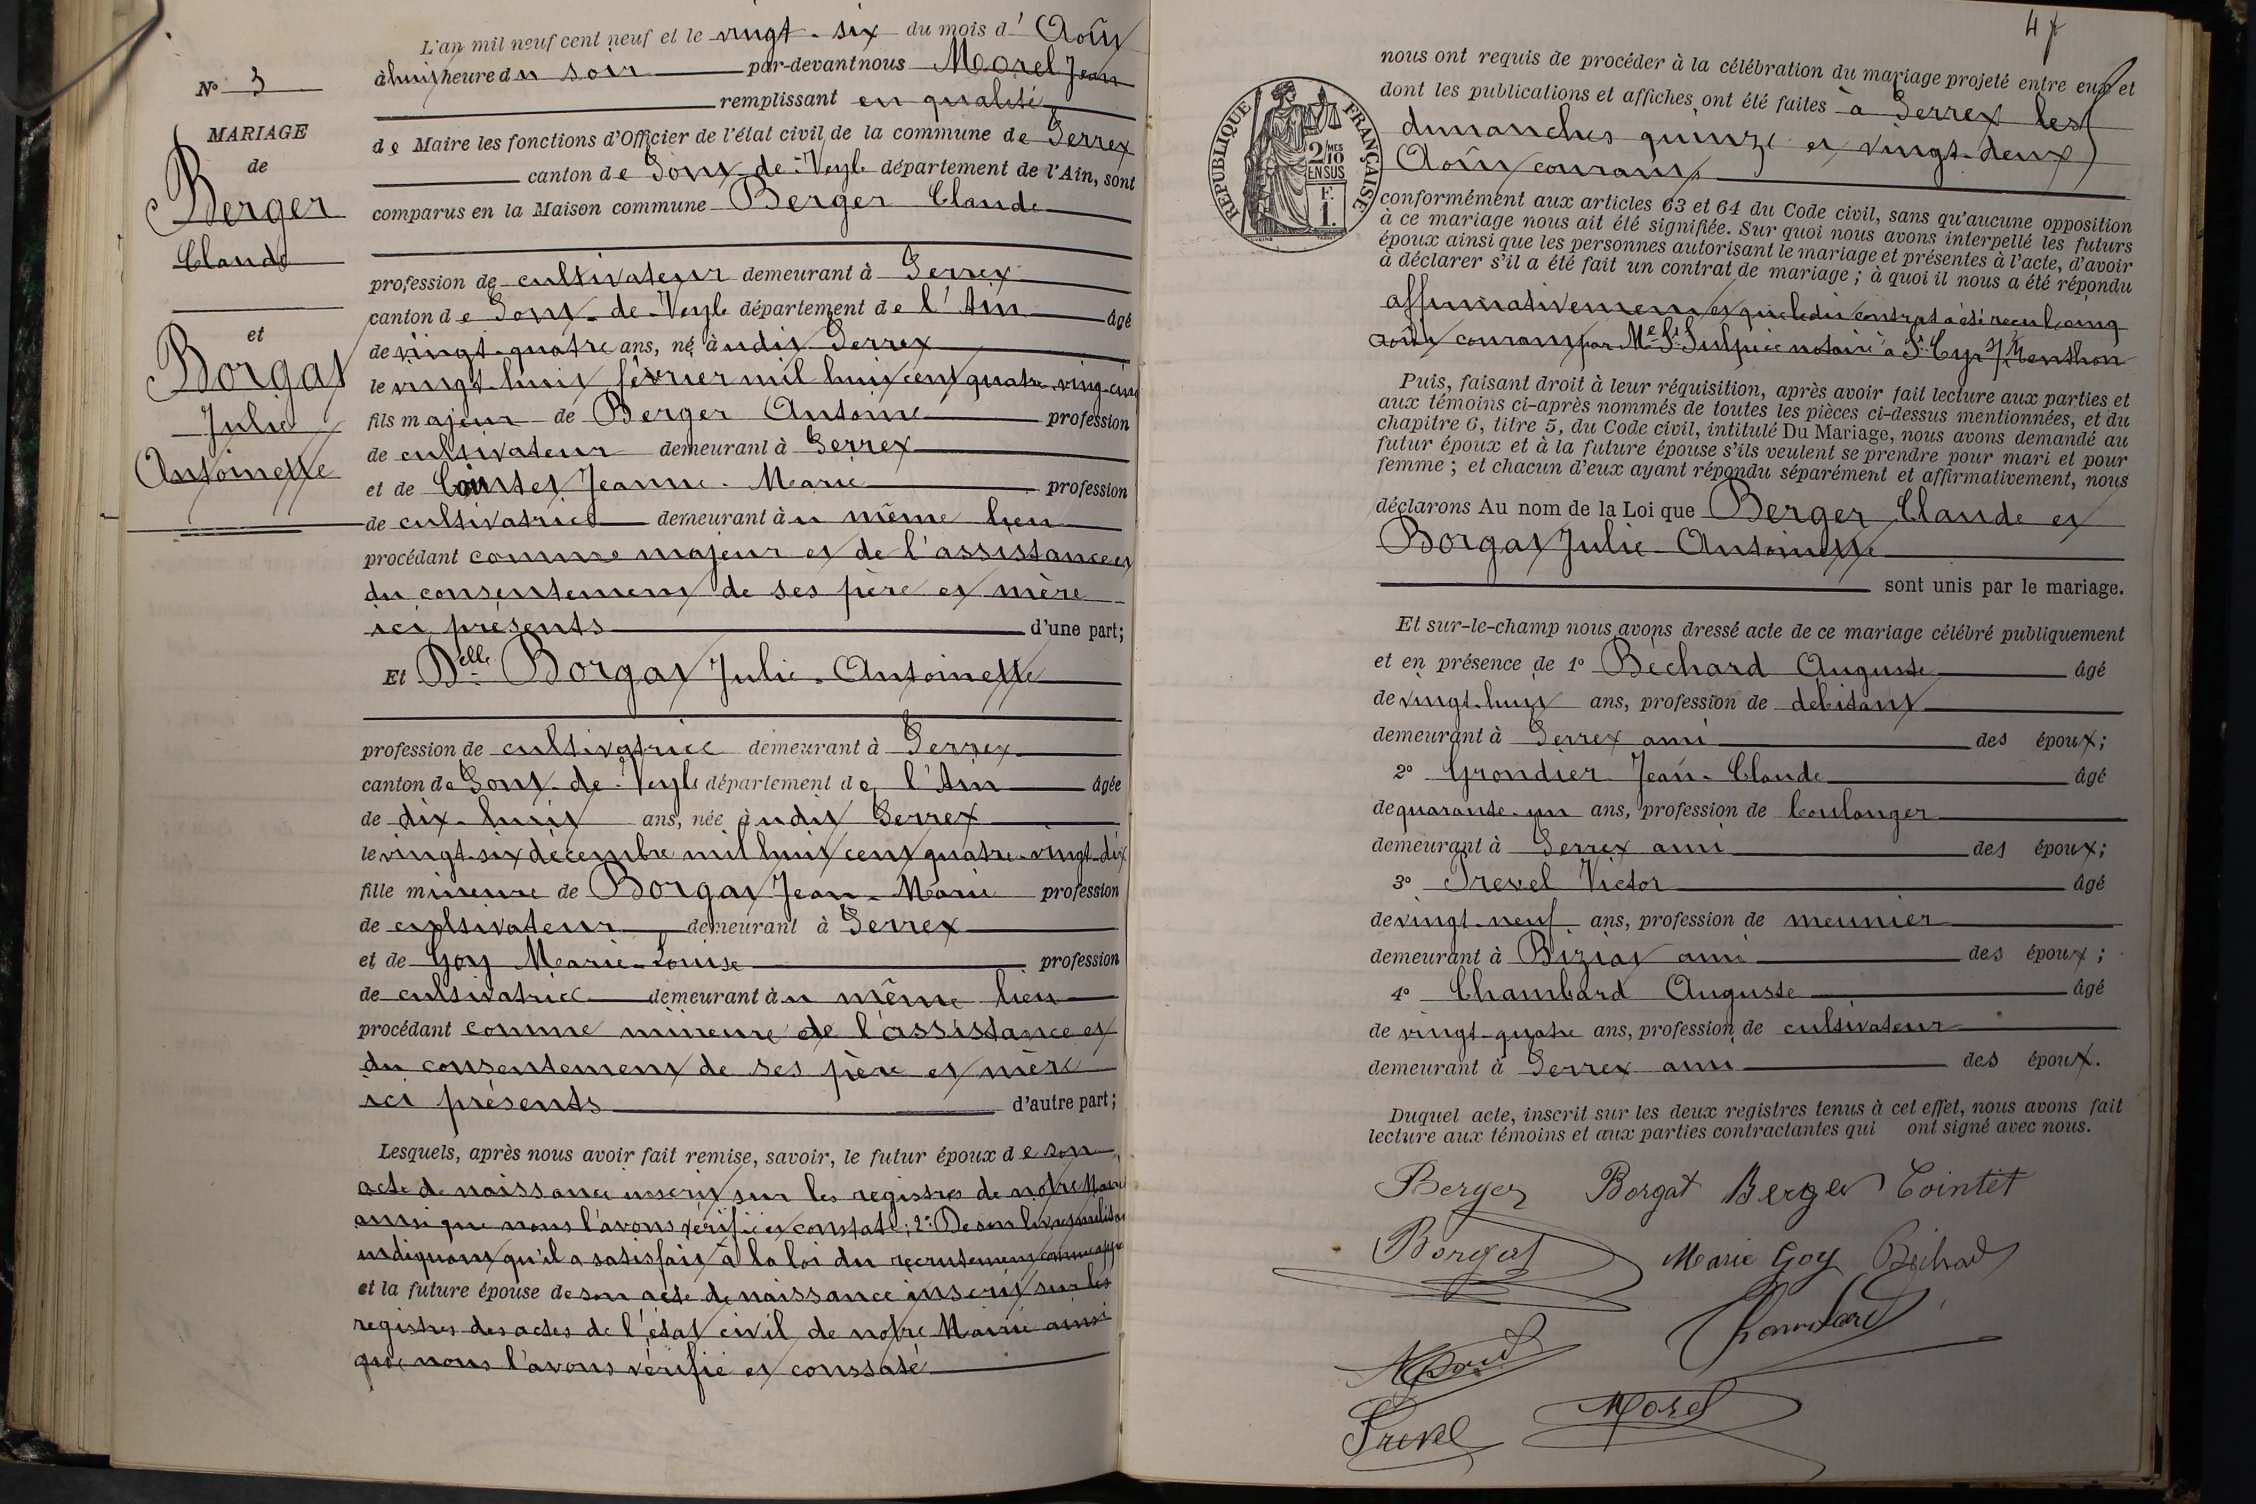 N° 3
MARIAGE
de
Berger
Claude
et
Borgat
Julie
Antoinette
L'an mil neuf cent neuf et le vingt-six du mois d'Août
à huit heure du soir par-devant nous Morel Jean
remplissant en qualité
de Maire les fonctions d'Officier de l'état civil de la commune de Perrex
canton de Pont-de-Veyle département de l'Ain, sont
comparus en la Maison commune Berger Claude
profession de cultivateur demeurant à Perrex
canton de Pont-de-Veyle département de l'Ain âgé
de vingt-quatre ans, né à udit Perrex
le vingt-huit février mil huit cent quatre-vingt-cinq
fils majeur de Berger Antoine profession
de cultivateur demeurant à Perrex
et de Cointet Jeanne-Marie profession
de cultivatrice demeurant àu même lieu
procédant comme majeur et de l'assistance et
du consentement de ses père et mère
ici présents d'une part;
Et Delle Borgat Julie-Antoinette
profession de cultivatrice demeurant à Perrex
canton de Pont-de-Veyle département de l'Ain âgée
de dix-huit ans, née àudit Perrex
le vingt-six décembre mil huit cent quatre-vingt-dix
fille mineure de Borgat Jean-Marie profession
de cultivateur demeurant à Perrex
et de Goy Marie-Louise profession
de cultivatrice demeurant àu même lieu
procédant comme mineure de l'assistance et
du consentement de ses père et mère
ici présents d'autre part;
Lesquels, après nous avoir fait remise, savoir, le futur époux de son
acte de naissance inscrit sur les registres de notre Mairie
ainsi que nous l'avons vérifié et constaté; 2° De son livret militaire
indiquant qu'il a satisfait à la loi du recrutement
et la future épouse de son acte de naissance inscrit sur les
registres des actes de l'état civil de notre Mairie ainsi
que nous l'avons vérifié et constaté
47
RÉPUBLIQUE FRANÇAISE
2/10 MES
EN SUS
F.
1.
nous ont requis de procéder à la célébration du mariage projeté entre eux et
dont les publications et affiches ont été faites à Perrex les
dimanches quinze et vingt-deux
Août courant
conformément aux articles 63 et 64 du Code civil, sans qu'aucune opposition
à ce mariage nous ait été signifiée. Sur quoi nous avons interpellé les futurs
époux ainsi que les personnes autorisant le mariage et présentes à l'acte, d'avoir
à déclarer s'il a été fait un contrat de mariage; à quoi il nous a été répondu
affirmativement et que ledit contrat a été reçu le cinq
août courant par Me St Sulpice notaire à St Cyr s/ Menthon
Puis, faisant droit à leur réquisition, après avoir fait lecture aux parties et
aux témoins ci-après nommés de toutes les pièces ci-dessus mentionnées, et du
chapitre 6, titre 5, du Code civil, intitulé Du Mariage, nous avons demandé au
futur époux et à la future épouse s'ils veulent se prendre pour mari et pour
femme; et chacun d'eux ayant répondu séparément et affirmativement, nous
déclarons Au nom de la Loi que Berger Claude et
Borgat Julie-Antoinette
sont unis par le mariage.
Et sur-le-champ nous avons dressé acte de ce mariage célébré publiquement
et en présence de 1° Béchard Auguste âgé
de vingt-huit ans, profession de débitant
demeurant à Perrex ami des époux;
2° Grondier Jean-Claude âgé
de quarante-un ans, profession de boulanger
demeurant à Perrex ami des époux;
3° Prevel Victor âgé
de vingt-neuf ans, profession de meunier
demeurant à Biziat ami des époux;
4° Chambard Auguste âgé
de vingt-quatre ans, profession de cultivateur
demeurant à Perrex ami des époux.
Duquel acte, inscrit sur les deux registres tenus à cet effet, nous avons fait
lecture aux témoins et aux parties contractantes qui ont signé avec nous.
Berger Borgat Berger Cointet
Borgat Marie Goy Béchard
Chambard
Prevel Morel